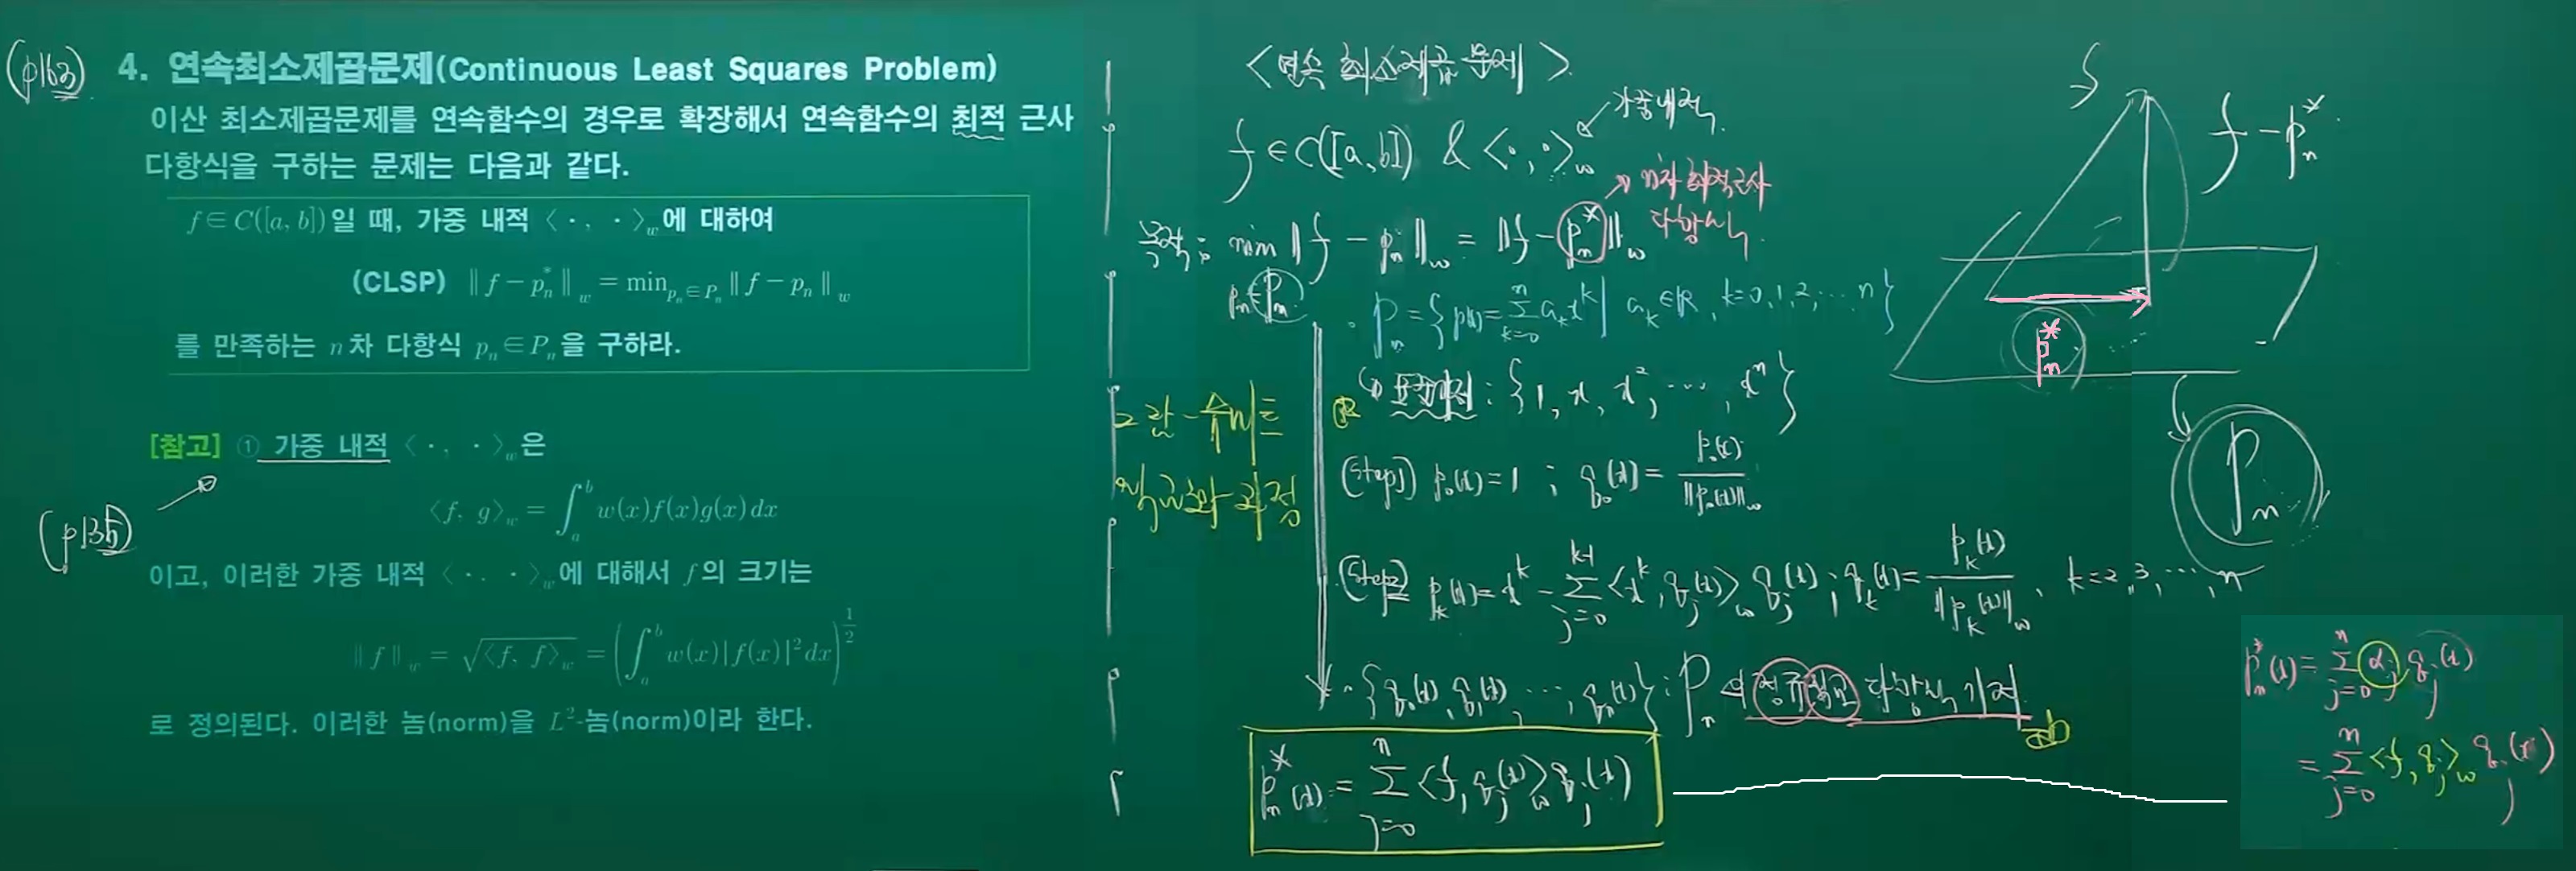 (p163)
4. 연속최소제곱문제(Continuous Least Squares Problem)
이산 최소제곱문제를 연속함수의 경우로 확장해서 연속함수의 최적 근사
다항식을 구하는 문제는 다음과 같다.
f∈C([a, b])일 때, 가중 내적 〈·, ·〉_w에 대하여
(CLSP) ‖f − p_n^*‖_w = min_{p_n∈P_n} ‖f − p_n‖_w
를 만족하는 n차 다항식 p_n∈P_n을 구하라.
[참고] ① 가중 내적 〈·, ·〉_w은
(p135)
〈f, g〉_w = ∫_a^b w(x)f(x)g(x)dx
이고, 이러한 가중 내적 〈·, ·〉_w에 대해서 f의 크기는
‖f‖_w = √〈f, f〉_w = (∫_a^b w(x)|f(x)|²dx)^{1/2}
로 정의된다. 이러한 놈(norm)을 L²-놈(norm)이라 한다.
<연속 최소제곱 문제>
가중내적
f∈C([a,b]) & <·,·>_w
n차 최적근사
다항식
목적: min_{p_n∈P_n} ‖f − p_n‖_w = ‖f − p_n^*‖_w
P_n = {p(x) = Σ_{k=0}^n a_k x^k | a_k∈ℝ, k=0,1,2,…n}
표준기저 : {1, x, x², …, x^n}
그람-슈미트
직교화 과정
(Step1) p_0(x) = 1 ; q_0(x) = p_0(x)/‖p_0(x)‖_w
(Step2) p_k(x) = x^k − Σ_{j=0}^{k-1} <x^k, q_j(x)>_w q_j(x) ; q_k(x) = p_k(x)/‖p_k(x)‖_w, k=2,3,…,n
{q_0(x), q_1(x), …, q_n(x)} : P_n의 정규직교 다항식 기저
p_n^*(x) = Σ_{j=0}^n <f, q_j(x)>_w q_j(x)
f
f − p_n^*
p_n^*
P_n
p_n^*(x) = Σ_{j=0}^n α_j q_j(x)
= Σ_{j=0}^n <f, q_j>_w q_j(x)